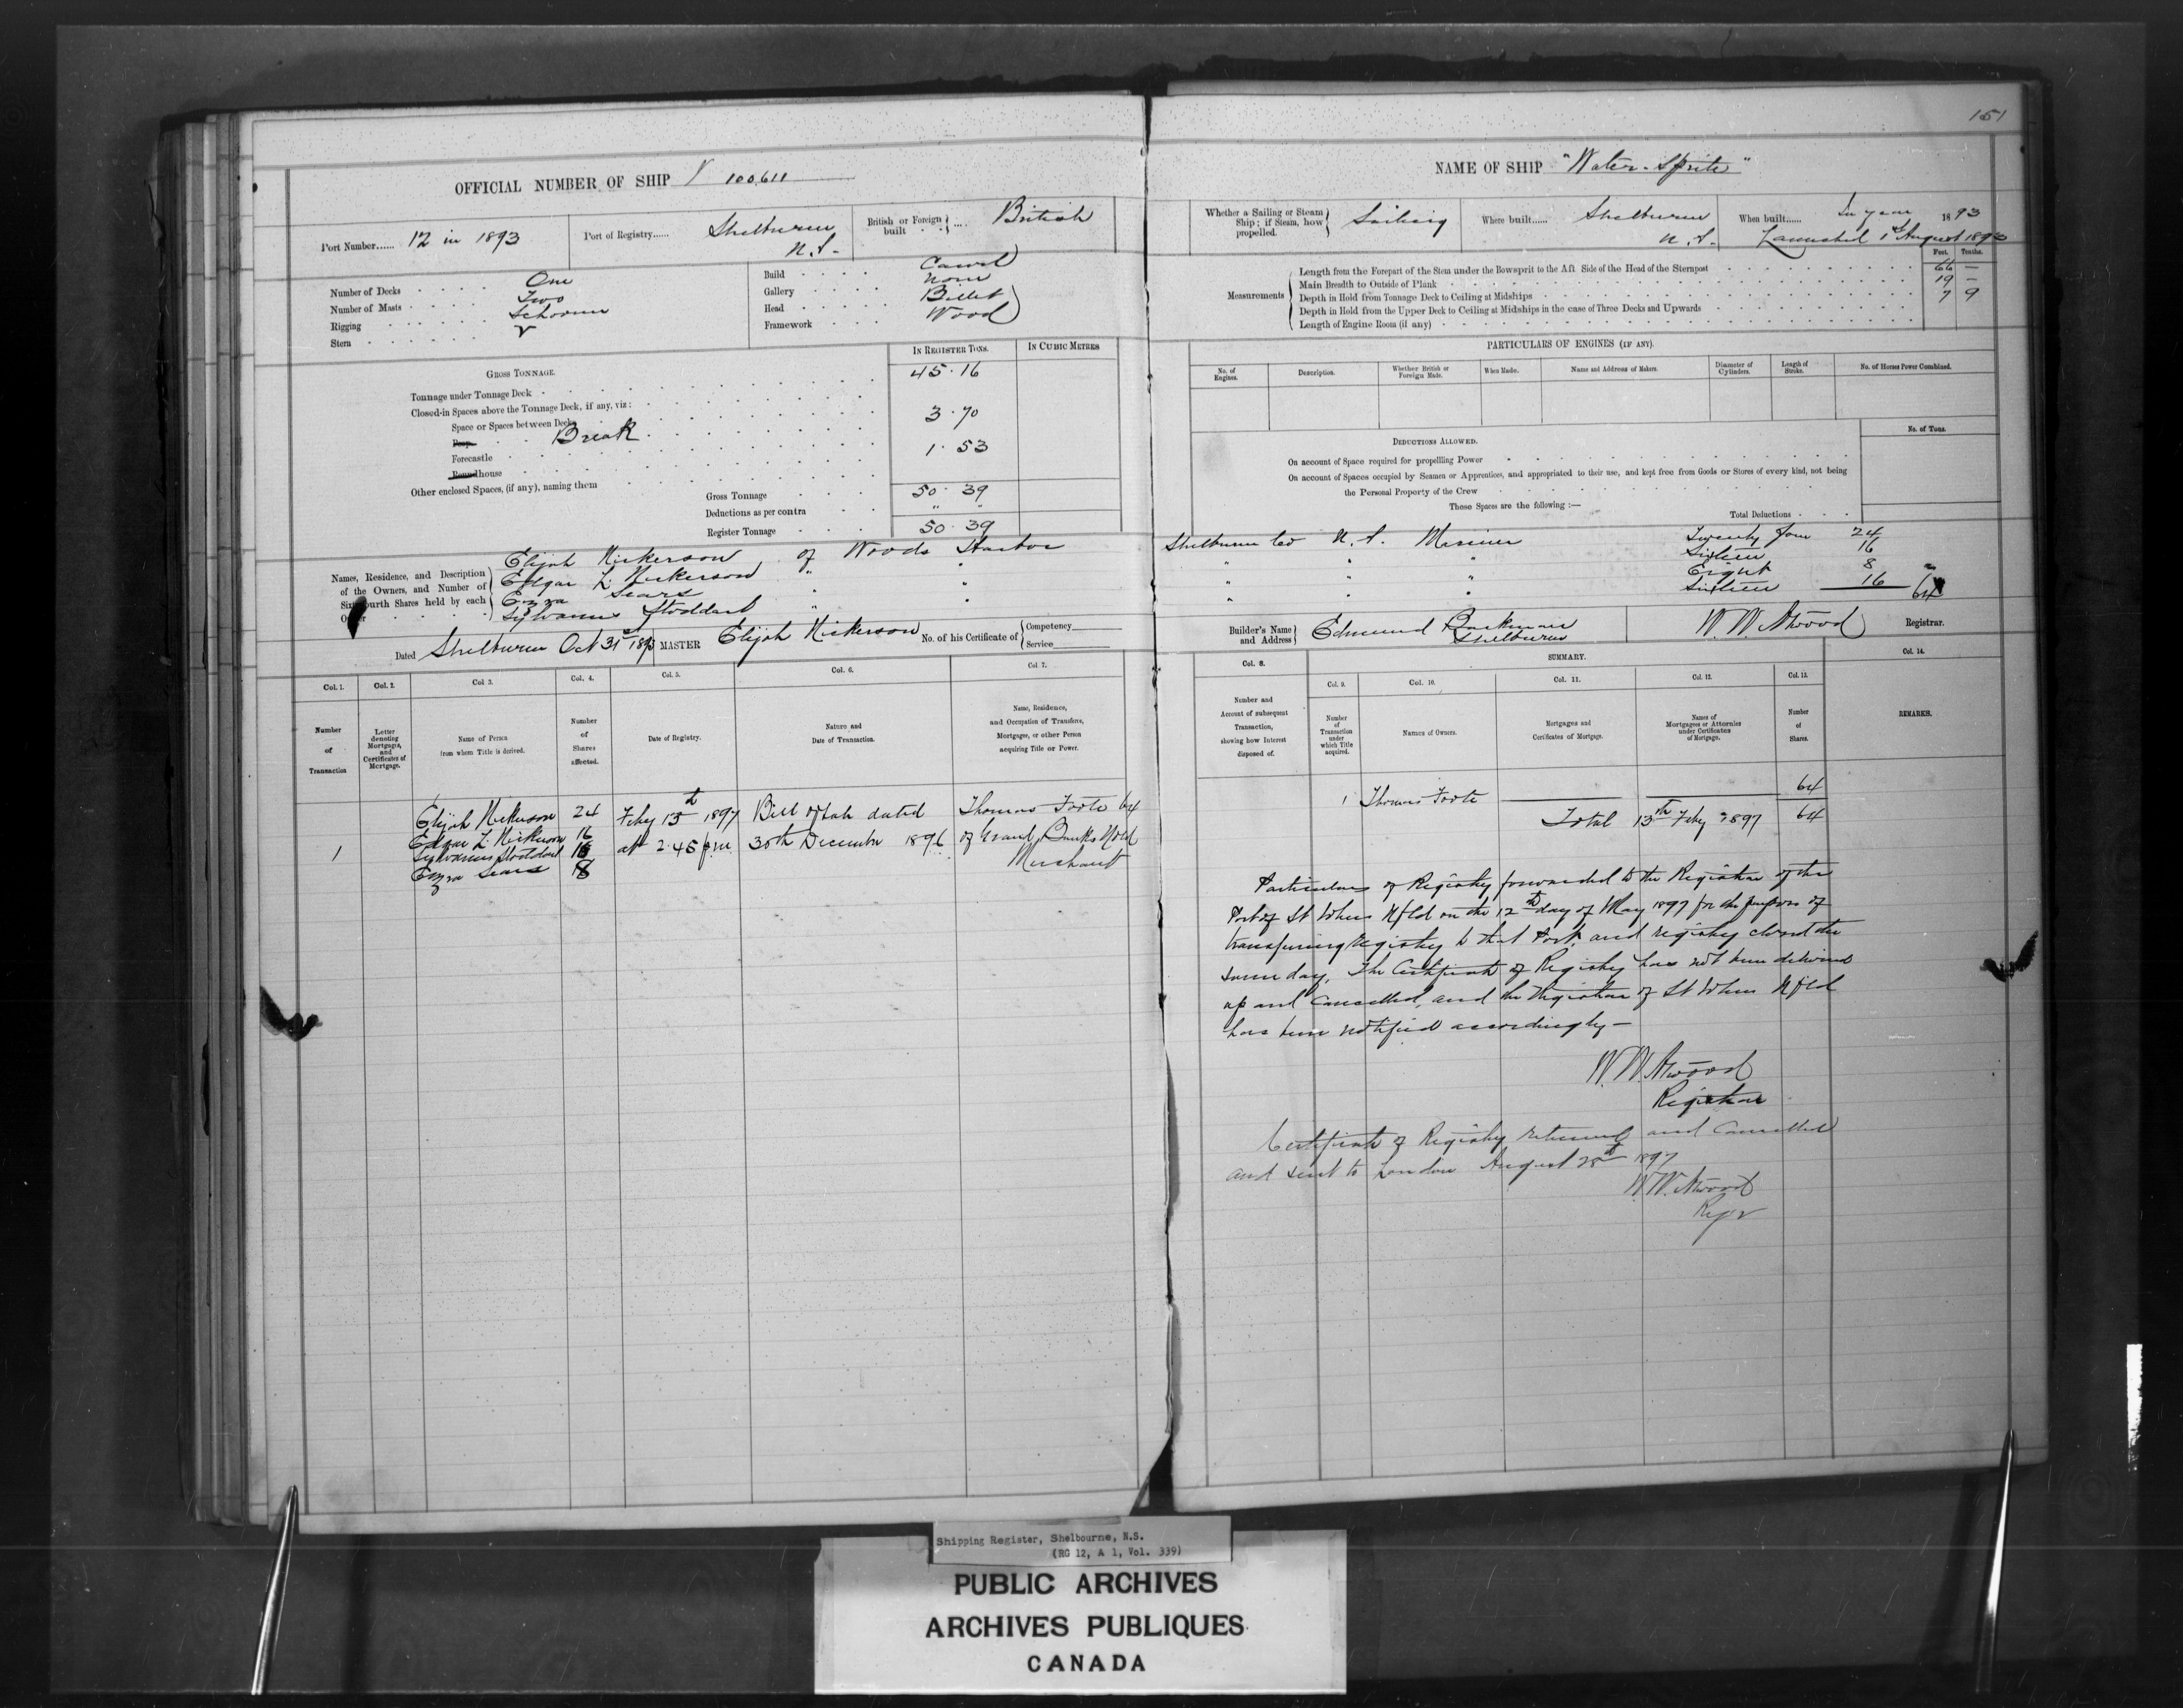 151
OFFICIAL NUMBER OF SHIP 100,611
Port Number...... 12 in 1893
Port of Registry...... Shelburne N.S.
British or Foreign built .... British
Number of Decks One
Number of Masts Two
Rigging Schooner
Stern
Build Carvel
Gallery None
Head Billet
Framework Wood
IN REGISTER TONS. IN CUBIC METRES
GROSS TONNAGE.
Tonnage under Tonnage Deck 45.16
Closed-in Spaces above the Tonnage Deck, if any, viz:
Space or Spaces between Decks
Poop Break 3.70
Forecastle 1.53
Roundhouse
Other enclosed Spaces, (if any), naming them
Gross Tonnage 50.39
Deductions as per contra " "
Register Tonnage 50.39
Names, Residence, and Description of the Owners, and Number of Sixty-fourth Shares held by each Owner
Elijah Nickerson of Woods Harbor
Edgar L. Nickerson " "
Ezra Sears " "
Sylvanus Stoddart " "
Dated Shelburne Oct 31st 1893 MASTER Elijah Nickerson No. of his Certificate of Competency Service
Col. 1. Col. 2. Col. 3. Col. 4. Col. 5. Col. 6. Col. 7.
Number of Transaction
Letter denoting Mortgages, and Certificates of Mortgage.
Name of Person from whom Title is derived.
Number of Shares affected.
Date of Registry.
Nature and Date of Transaction.
Name, Residence, and Occupation of Transferee, Mortgagee, or other Person acquiring Title or Power.
Elijah Nickerson 24 Feby 13th 1897 Bill of Sale dated Thomas Foote 64
Edgar L. Nickerson 16 at 2.45 p.m. 30th December 1896 of Grand Banks Nfld
1 Sylvanus Stoddart 16 Merchant
Ezra Sears 8
NAME OF SHIP "Water-Sprite"
Whether a Sailing or Steam Ship; if Steam, how propelled. Sailing
Where built...... Shelburne N.S.
When built...... In year 1893
Launched 1st August 1893
Feet. Tenths.
Measurements
Length from the Forepart of the Stem under the Bowsprit to the Aft Side of the Head of the Sternpost 66 —
Main Breadth to Outside of Plank 19 —
Depth in Hold from Tonnage Deck to Ceiling at Midships 7 9
Depth in Hold from the Upper Deck to Ceiling at Midships in the case of Three Decks and Upwards
Length of Engine Room (if any)
PARTICULARS OF ENGINES (IF ANY).
No. of Engines. Description. Whether British or Foreign Made. When Made. Name and Address of Makers. Diameter of Cylinders. Length of Stroke. No. of Horses Power Combined.
DEDUCTIONS ALLOWED. No. of Tons.
On account of Space required for propelling Power
On account of Spaces occupied by Seamen or Apprentices, and appropriated to their use, and kept free from Goods or Stores of every kind, not being
the Personal Property of the Crew
These Spaces are the following :—
Total Deductions
Shelburne Co N.S. Mariner Twenty four 24
" " " Sixteen 16
" " " Eight 8
" " Sixteen 16 64
Builder's Name and Address Edmund Shelburne
W. W. Atwood Registrar.
Col. 8. SUMMARY. Col. 14.
Col. 9. Col. 10. Col. 11. Col. 12. Col. 13.
Number and Account of subsequent Transaction, showing how Interest disposed of.
Number of Transaction under which Title acquired.
Names of Owners.
Mortgages and Certificates of Mortgage.
Names of Mortgagees or Attornies under Certificates of Mortgage.
Number of Shares.
REMARKS.
1 Thomas Foote 64
Total 13th Feby 1897 64
Particulars of Registry forwarded to the Registrar of the
Port of St Johns Nfld on the 12th day of May 1897 for the purpose of
transferring Registry to that Port, and registry closed the
same day. The Certificate of Registry has not been delivered
up and Cancelled, and the Registrar of St Johns Nfld
has been notified accordingly —
W. W. Atwood
Registrar
Certificate of Registry returned and Cancelled
and sent to London August 28th 1897
W. W. Atwood
Regr
Shipping Register, Shelbourne, N.S.
(RG 12, A 1, Vol. 339)
PUBLIC ARCHIVES
ARCHIVES PUBLIQUES
CANADA